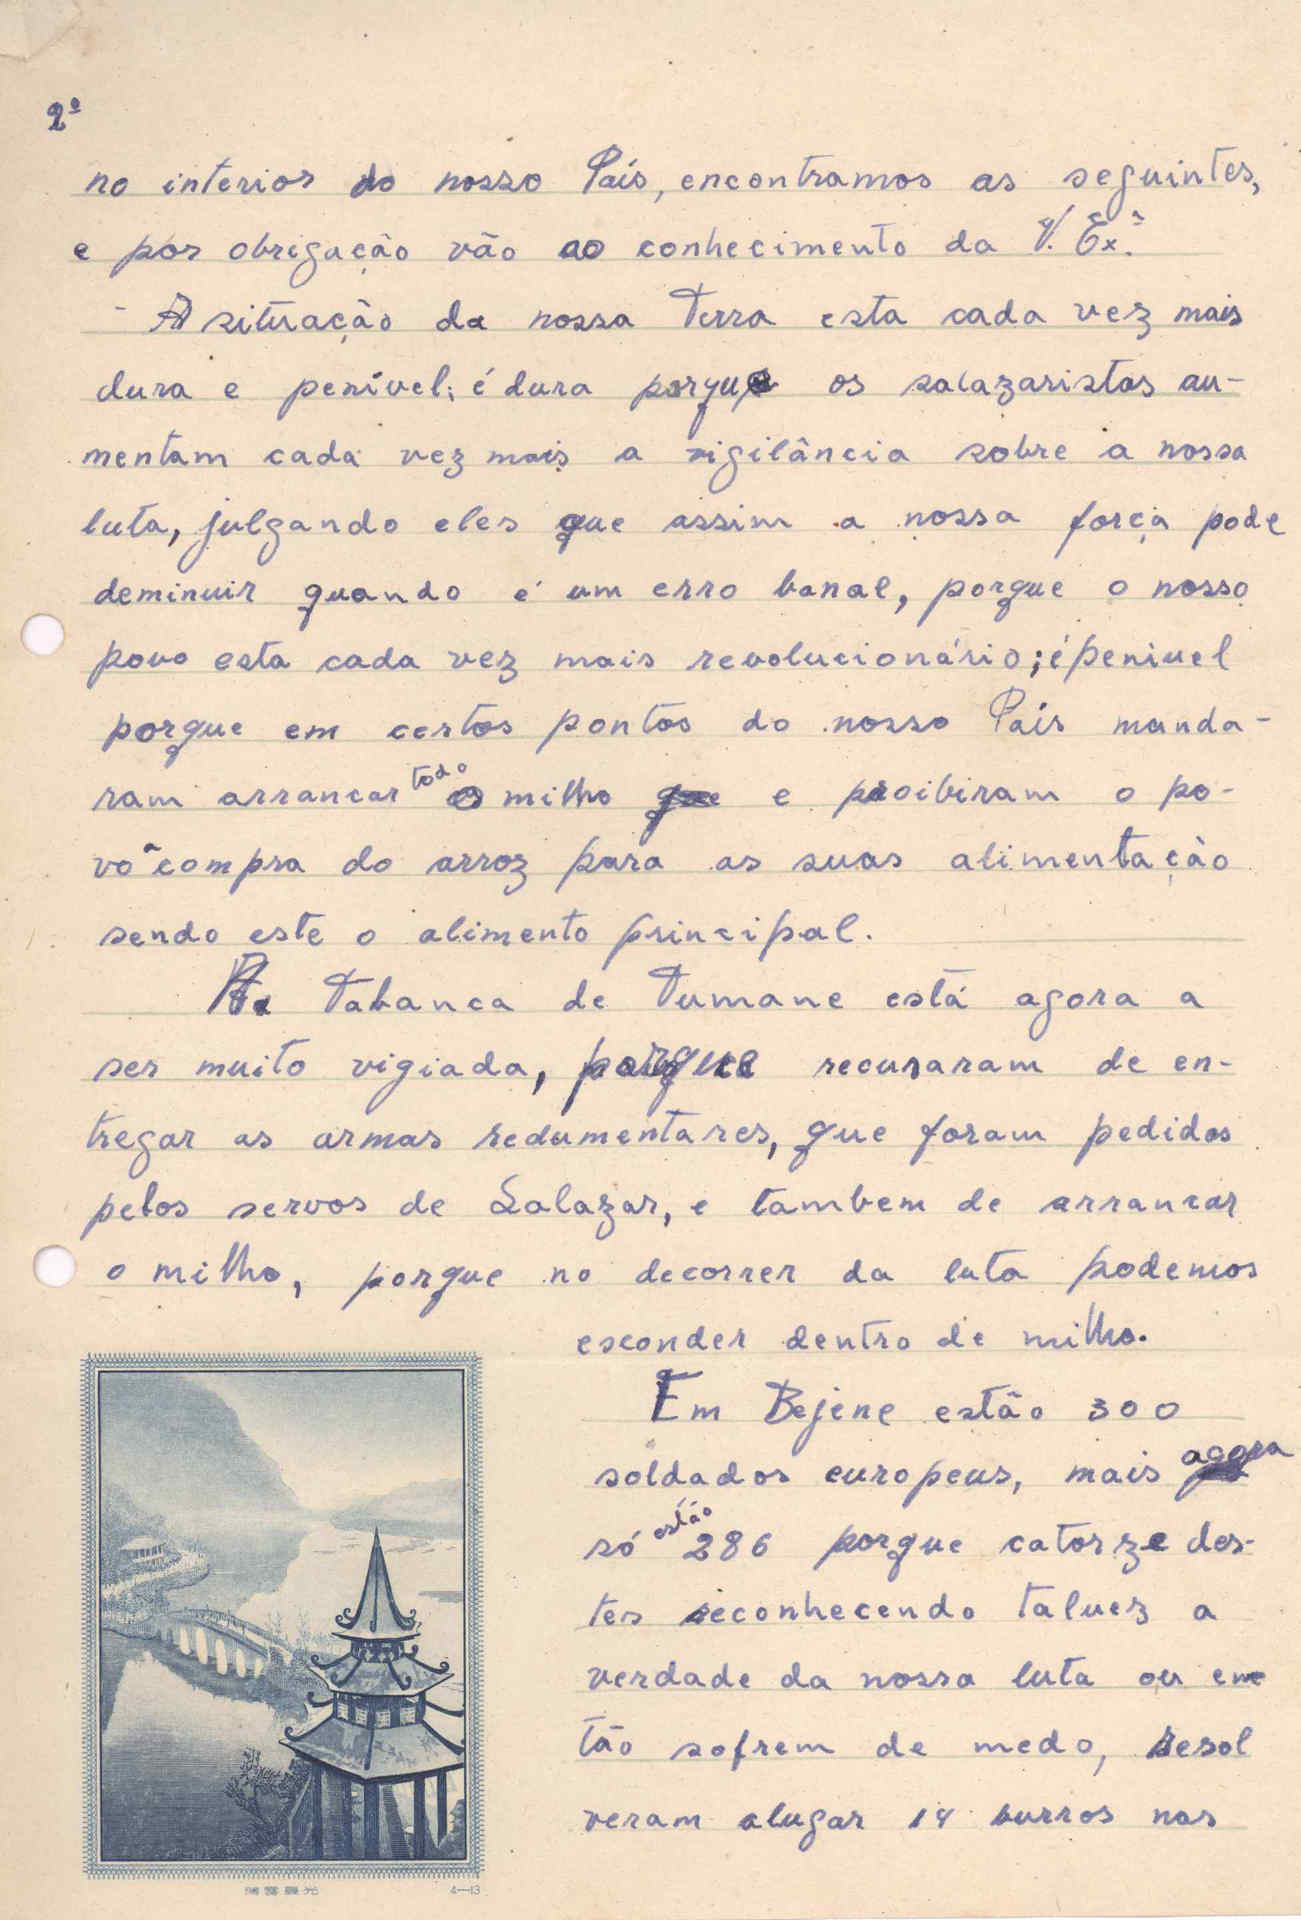 2ª
no interior do nosso País, encontramos as seguintes,
e por obrigação vão ao conhecimento da V. Exª.
- A situação da nossa Terra esta cada vez mais
dura e penível; é dura porque os salazaristas au-
mentam cada vez mais a vigilância sobre a nossa
luta, julgando eles que assim a nossa força pode
deminuir quando é um erro banal, porque o nosso
povo esta cada vez mais revolucionário; é penivel
porque em certos pontos do nosso País manda-
ram arrancar todo o milho e proibiram o po-
vo a compra do arroz para as suas alimentação
sendo este o alimento principal.
A Tabanca de Tumane está agora a
ser muito vigiada, porque recusaram de en-
tregar as armas redumentares, que foram pedidos
pelos servos de Salazar, e tambem de arrancar
o milho, porque no decorrer da luta podemos
esconder dentro de milho.
Em Bejene estão 300
soldados europeus, mais agora
só estão 286 porque catorze des-
tes reconhecendo talvez a
verdade da nossa luta ou en
tão sofrem de medo, resol
veram alugar 14 burros nas
4—13